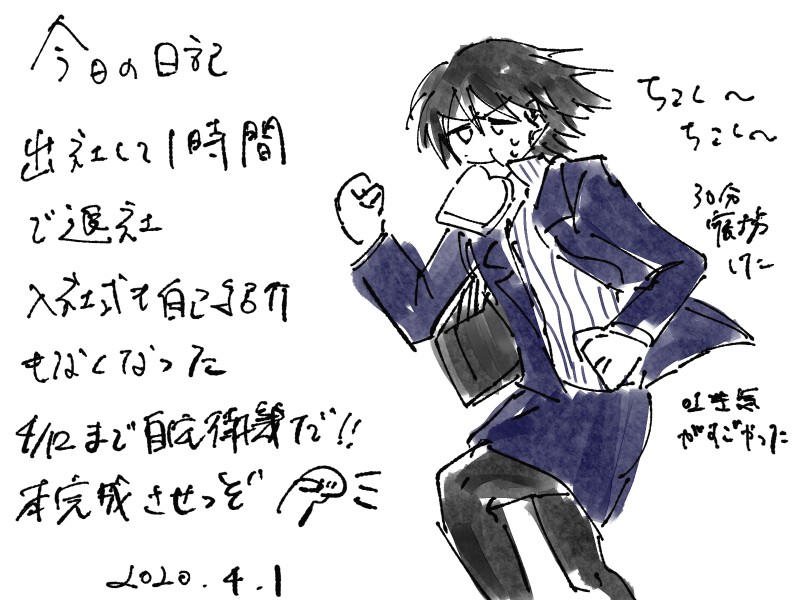 今日の日記
出社して1時間
で退社
入社式も自己紹介
もなくなった
4/12まで自宅待機だ!!
本完成させっぞ
2020.4.1
ちこく〜
ちこく〜
30分
寝坊
した
吐き気
がすごかった